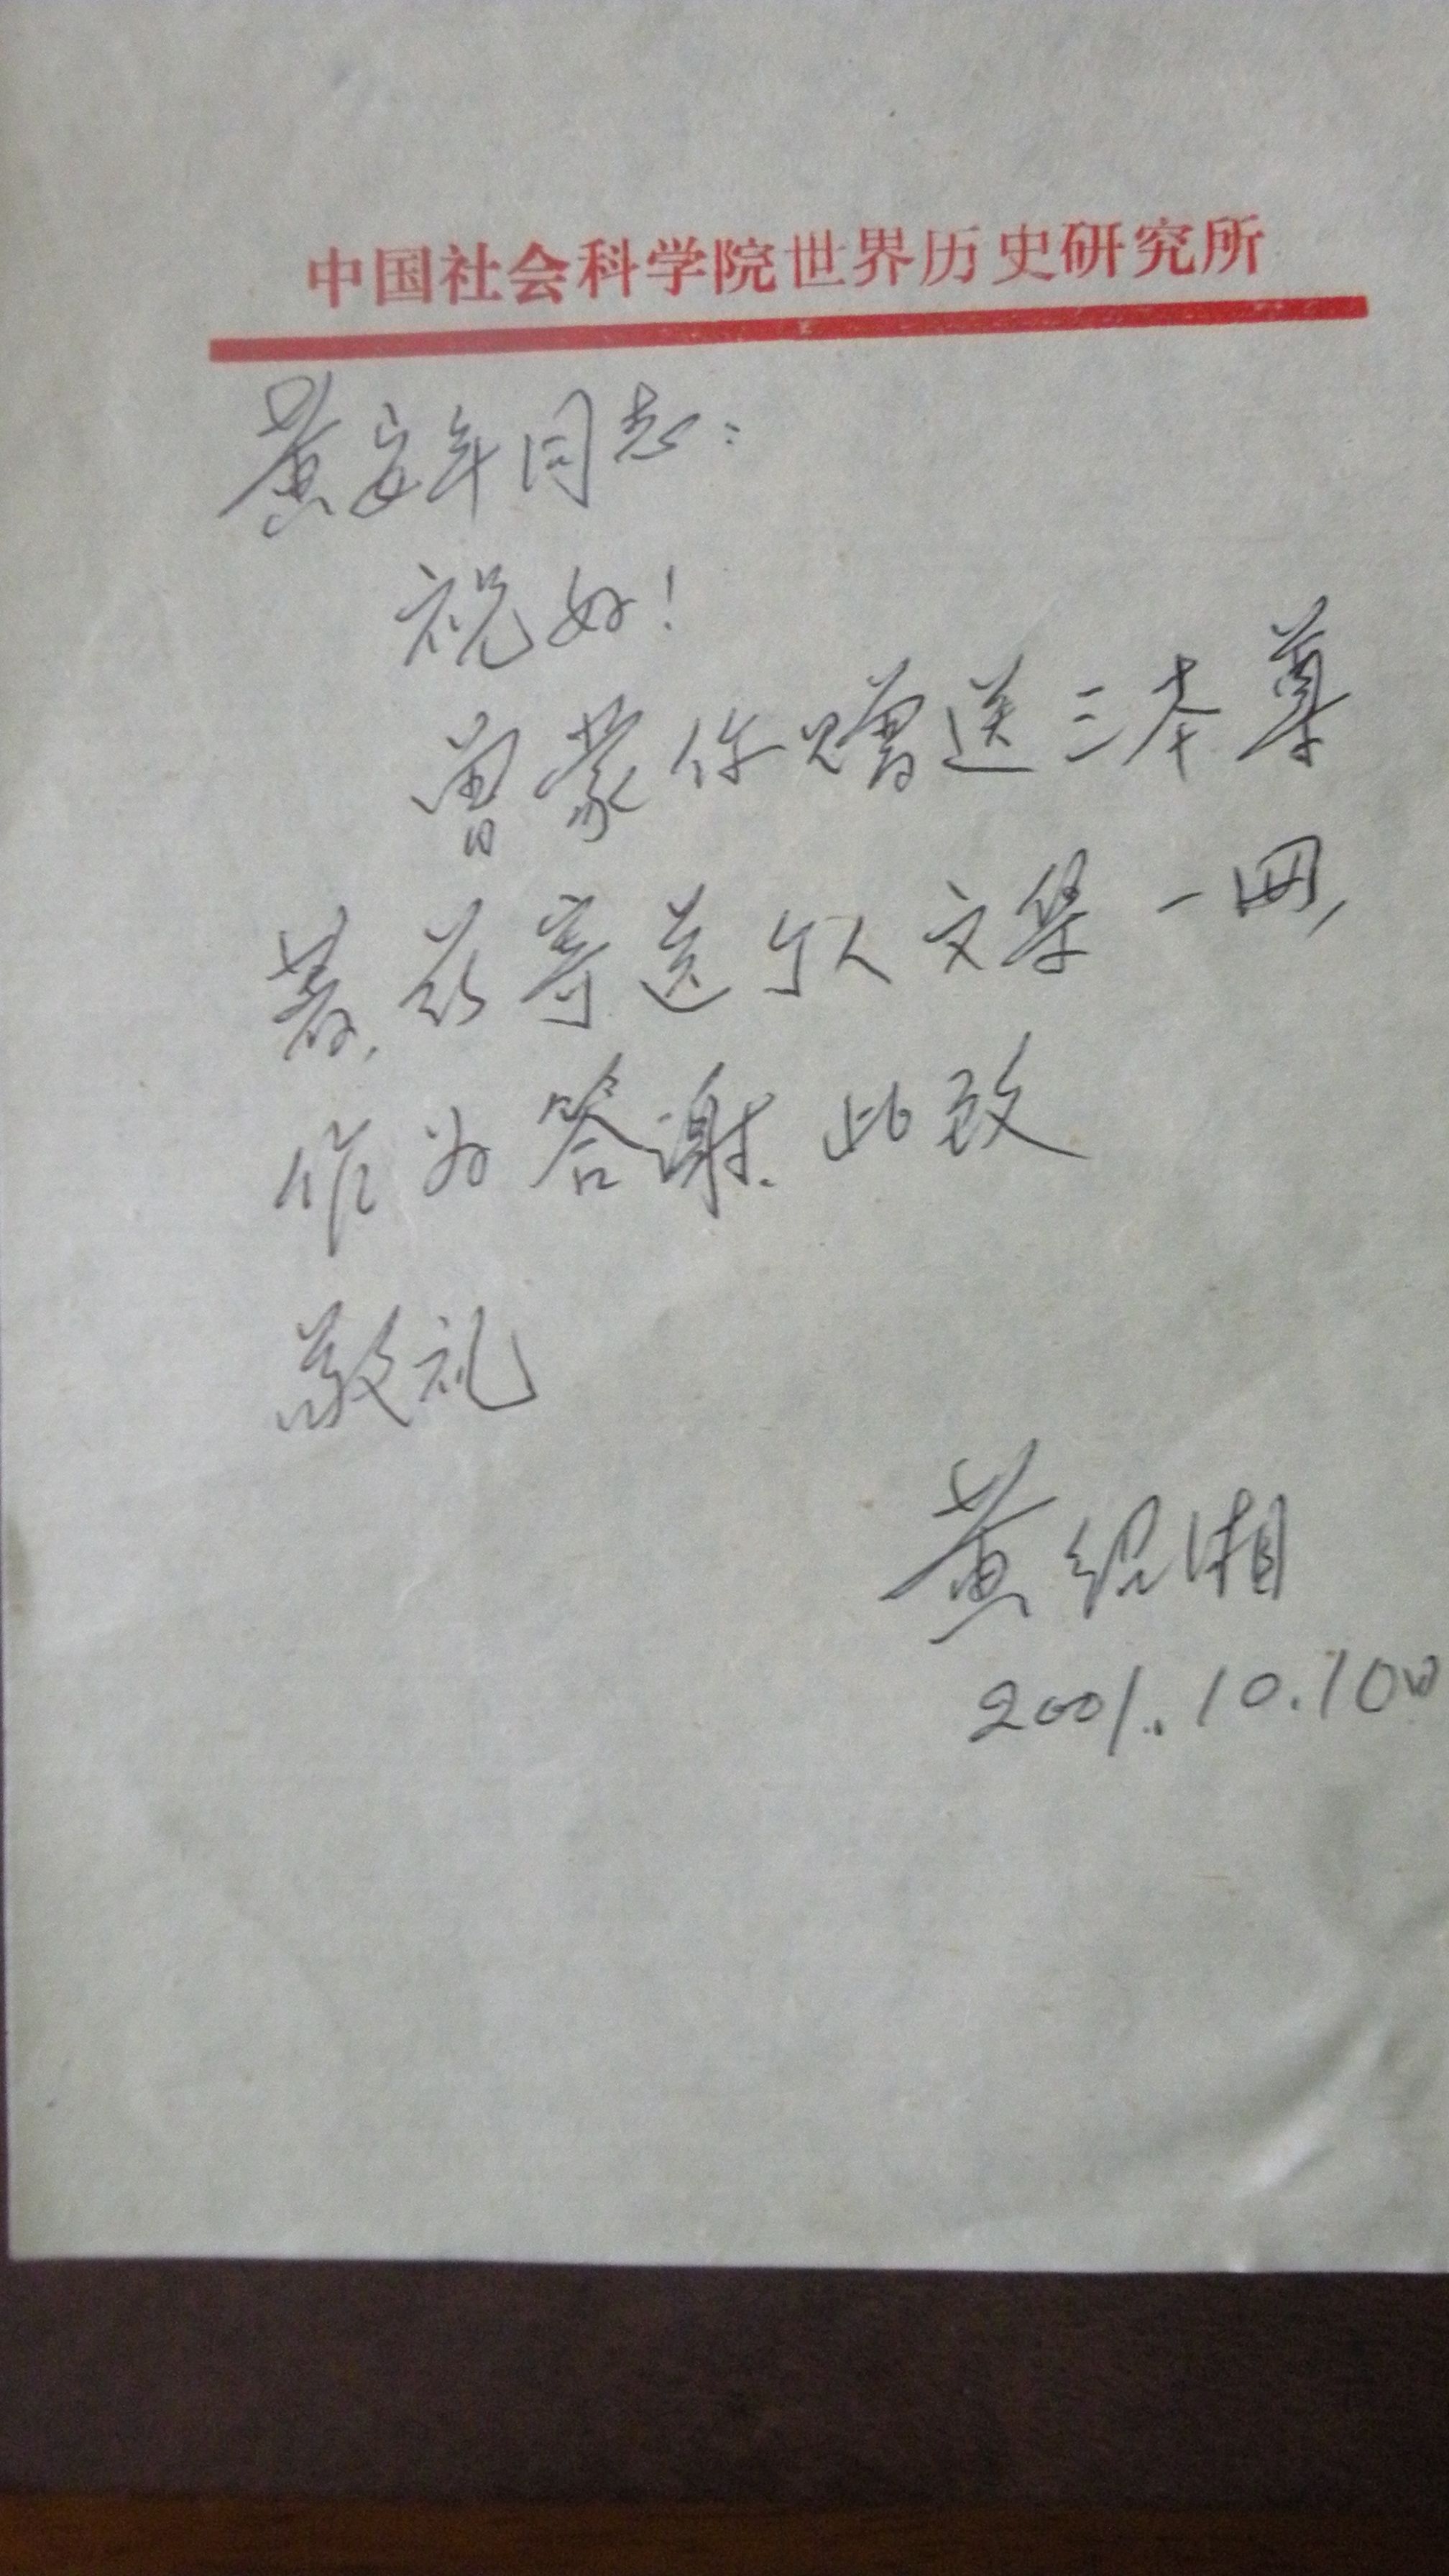 中国社会科学院世界历史研究所
黄安年同志：
祝好！
曾蒙你赠送三本尊
著，兹寄送个人文集一册，
作为答谢．此致
敬礼
黄绍湘
2001.10.10日